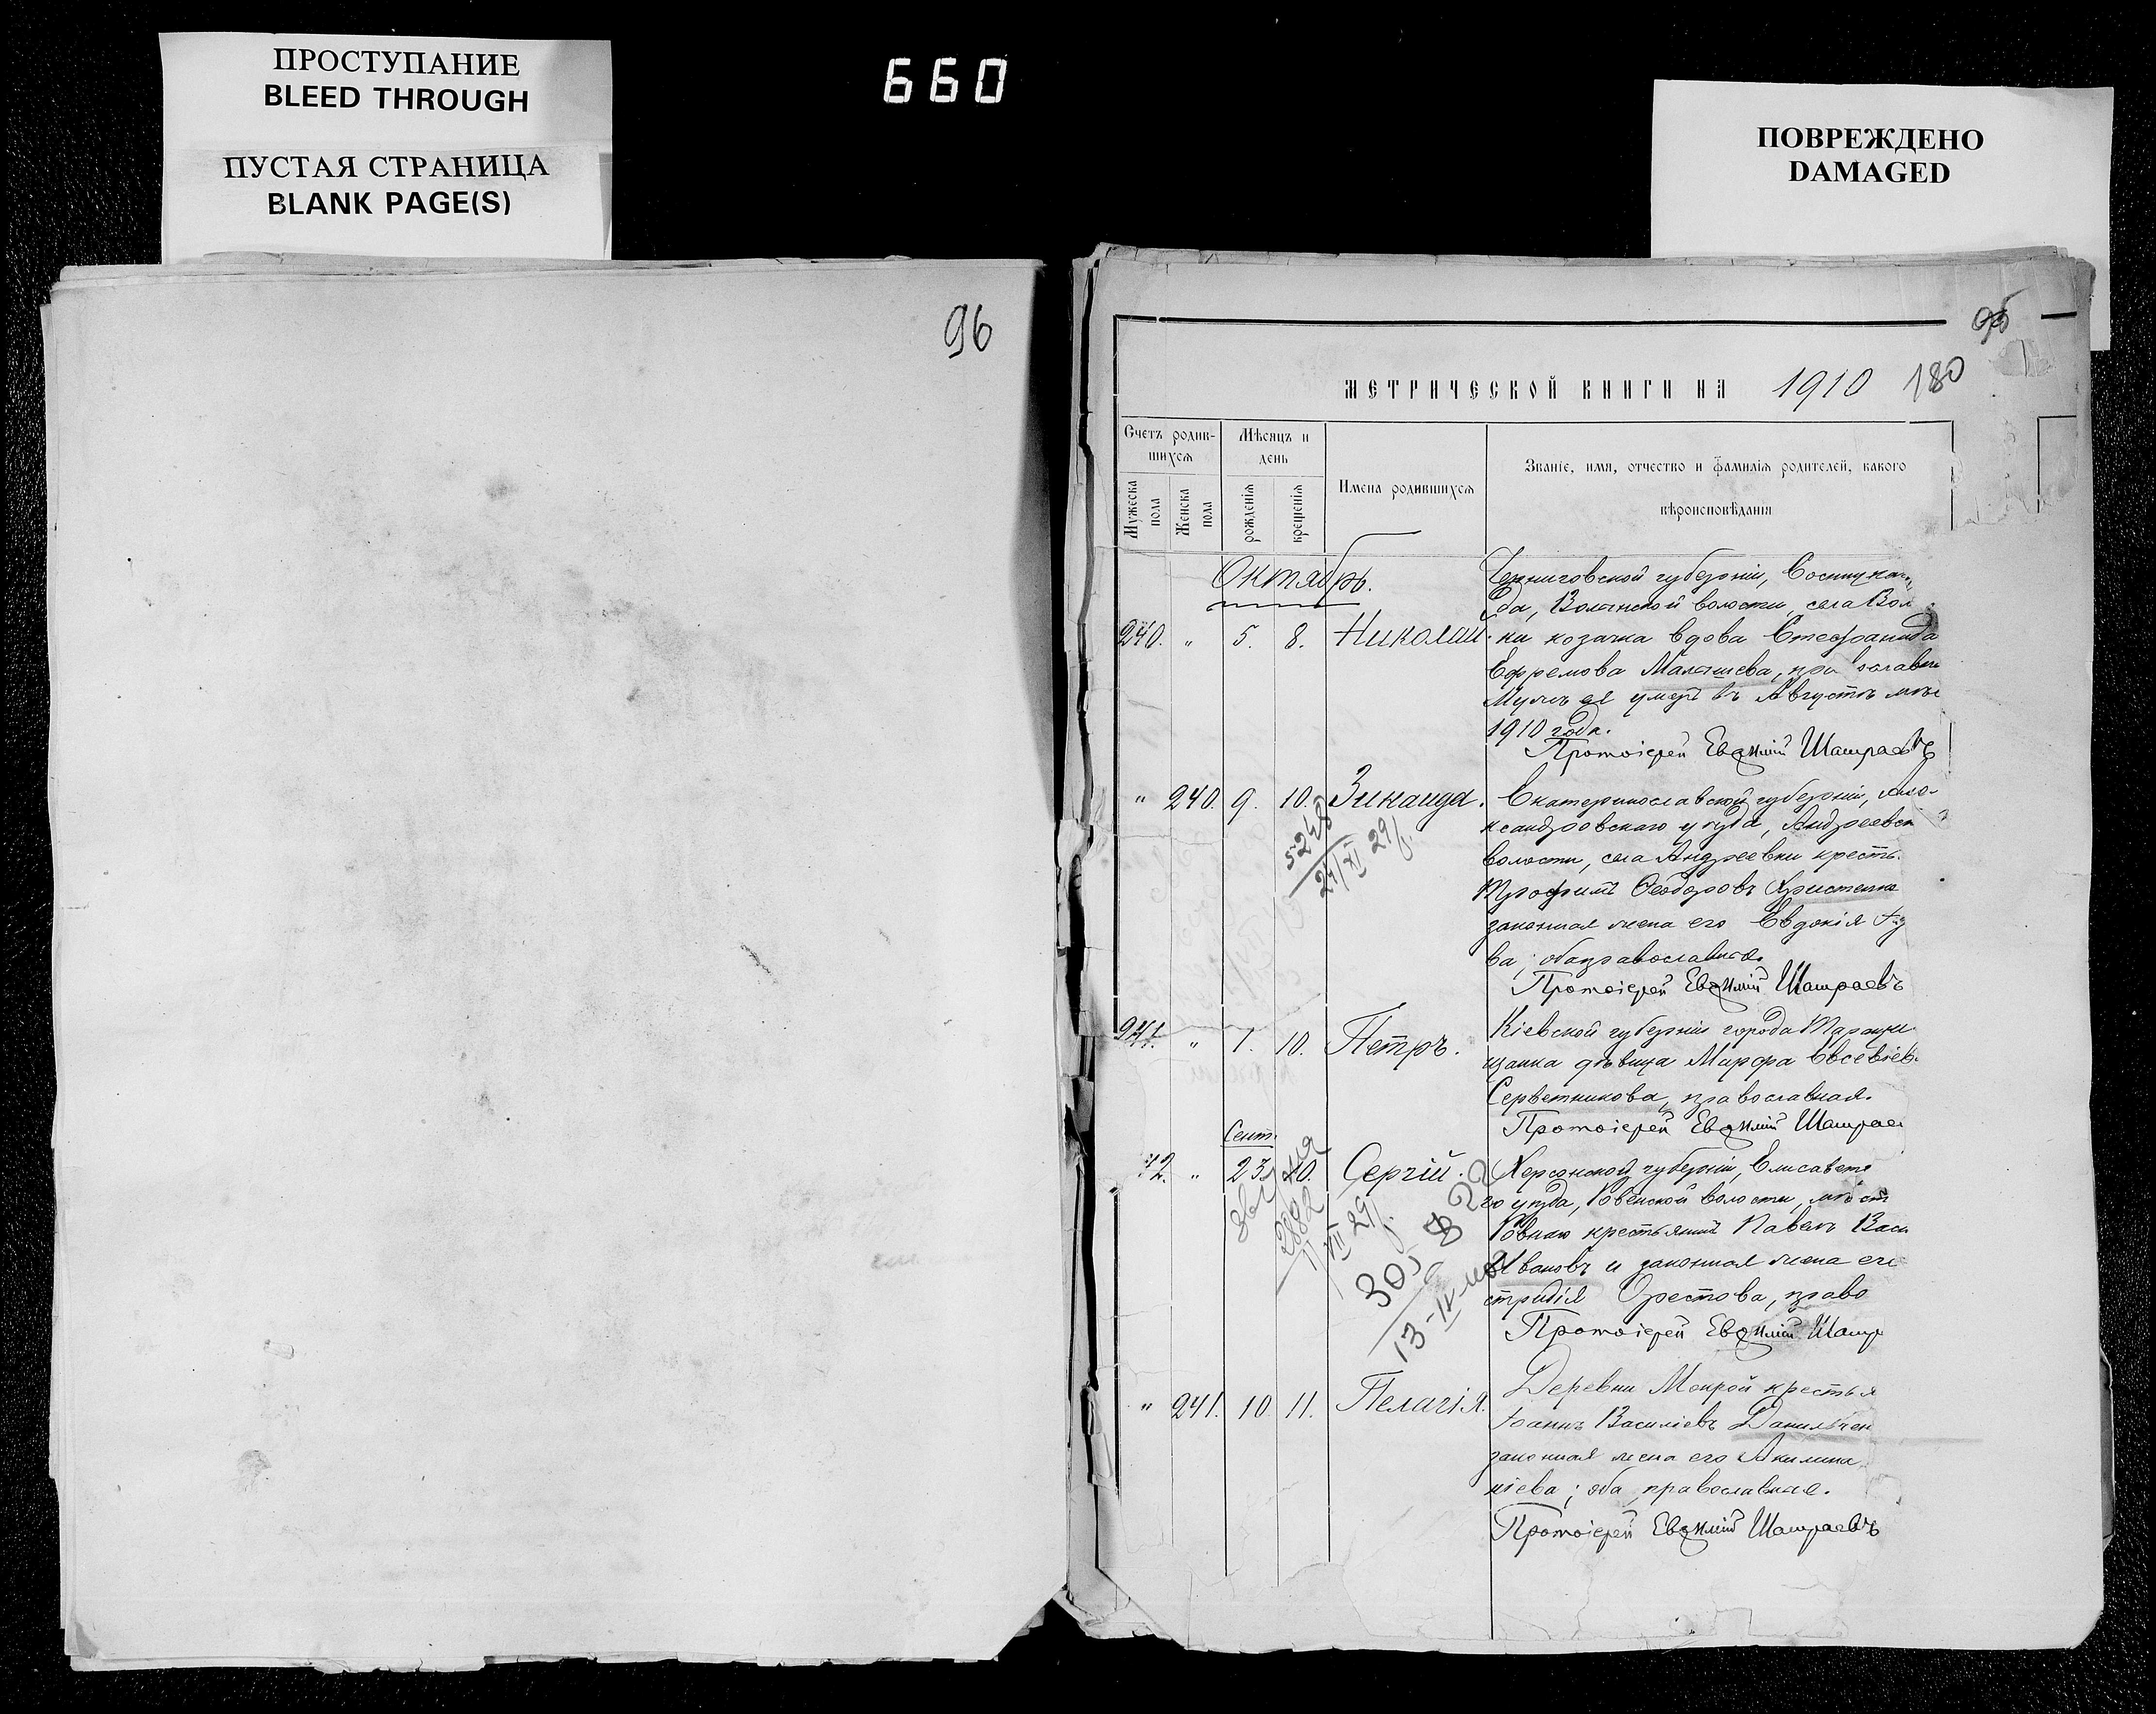 ПРОСТУПАНИЕ
BLEED THROUGH
ПУСТАЯ СТРАНИЦА
BLANK PAGE(S)
660
ПОВРЕЖДЕНО
DAMAGED
96
МЕТРИЧЕСКОЙ КНИГИ НА 1910 180
Счетъ родив-
шихся
Мѣсяцъ и
день
Мужеска
пола
Женска
пола
рожденія
крещенія
Имена родившихся
Званіе, имя, отчество и фамилія родителей, какого
вѣроисповѣданія
Октябрь.
Черниговской губерніи,
волости, села
240. " 5. 8. Николай. ки козачка вдова Стефанида
Ефремова Малышева,
Мужъ ея умеръ въ Августѣ
1910 года.
Протоіерей Евѳимій Шатраевъ
" 240. 9. 10. Зинаида. Екатеринославской губерніи,
ксандровскаго уѣзда, Андреевск
волости, села Андреевки кресть.
5248
24/XI 29г.
Трофимъ Ѳеодоровъ Христенко
законная жена его Евдокія
ва; оба православные.
Протоіерей Евѳимій Шатраевъ
241. " 1. 10. Петръ. Кіевской губерніи города Таращи
щанка дѣвица Марфа Евсевіев.
Серветникова, православная.
Протоіерей Евѳимій Шатрае
Сент.
42. " 23. 10. Сергій. Херсонской губерніи, Елисавет
го уѣзда, Ровенской волости,
Ровнаго крестьянинъ Павелъ Васи
Ивановъ и законная жена его
2882
VII 29г.
305
13-IV
Орестова, право
Протоіерей Евѳимій Шатр
" 241. 10. 11. Пелагія. Деревни Мокрой крестья
Іоаннъ Василіевъ Данильчен
законная жена его Акилина
ніева; оба православные.
Протоіерей Евѳимій Шатраевъ